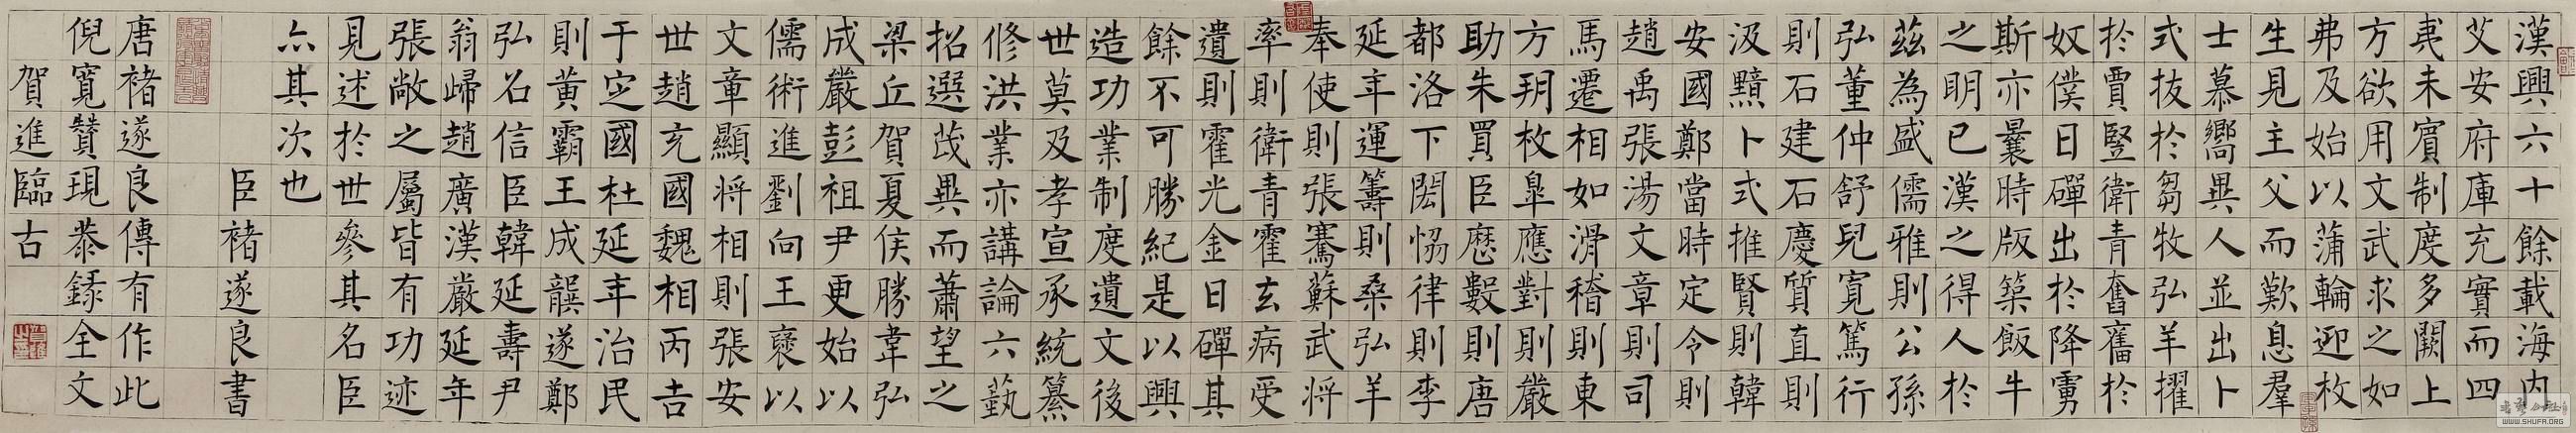 漢興六十餘載海内
艾安府庫充實而四
夷未賓制度多闕上
方欲用文武求之如
弗及始以蒲輪迎枚
生見主父而歎息羣
士慕嚮異人並出卜
式拔於芻牧弘羊擢
於賈豎衛青奮舊於
奴僕日磾出於降虜
斯亦曩時版築飯牛
之明已漢之得人於
茲為盛儒雅則公孫
弘董仲舒兒寬篤行
則石建石慶質直則
汲黯卜式推賢則韓
安國鄭當時定令則
趙禹張湯文章則司
馬遷相如滑稽則東
方朔枚皐應對則嚴
助朱買臣歷數則唐
都洛下閎恊律則李
延年運籌則桑弘羊
奉使則張騫蘇武将
率則衛青霍玄病受
遺則霍光金日磾其
餘不可勝紀是以興
造功業制度遺文後
世莫及孝宣承統纂
修洪業亦講論六藝
招選茂異而蕭望之
梁丘賀夏侯勝韋弘
成嚴彭祖尹更始以
儒術進劉向王襃以
文章顯将相則張安
世趙充國魏相丙吉
于定國杜延年治民
則黄霸王成龔遂鄭
弘召信臣韓延壽尹
翁歸趙廣漢嚴延年
張敞之屬皆有功迹
見述於世參其名臣
亦其次也
臣褚遂良書
唐褚遂良傳有作此
倪寬贊現恭録全文
賀進臨古
WWW.SHUFA.ORG